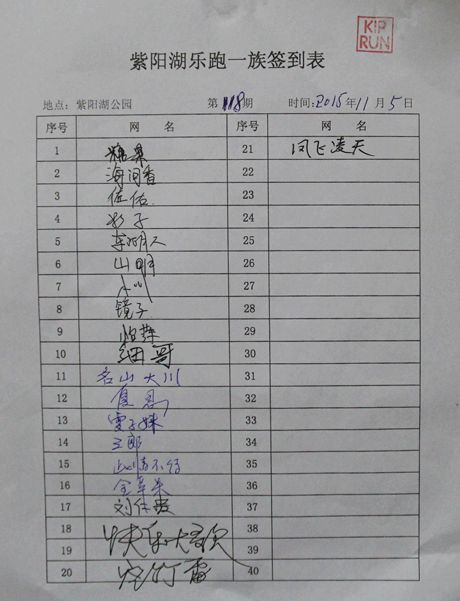 KIP
RUN
紫阳湖乐跑一族签到表
地点: 紫阳湖公园 第118期 时间:2015年11月5日
序号 网 名 序号 网 名
1 糖果 21 风飞凌天
2 海阔香 22
3 佐佑 23
4 影子 24
5 25
6 山明 26
7 小川 27
8 镜子 28
9 29
10 细哥 30
11 名山大川 31
12 夏忍 32
13 雯子妹 33
14 三郎 34
15 此情不待 35
16 36
17 37
18 快乐大哥 38
19 39
20 40